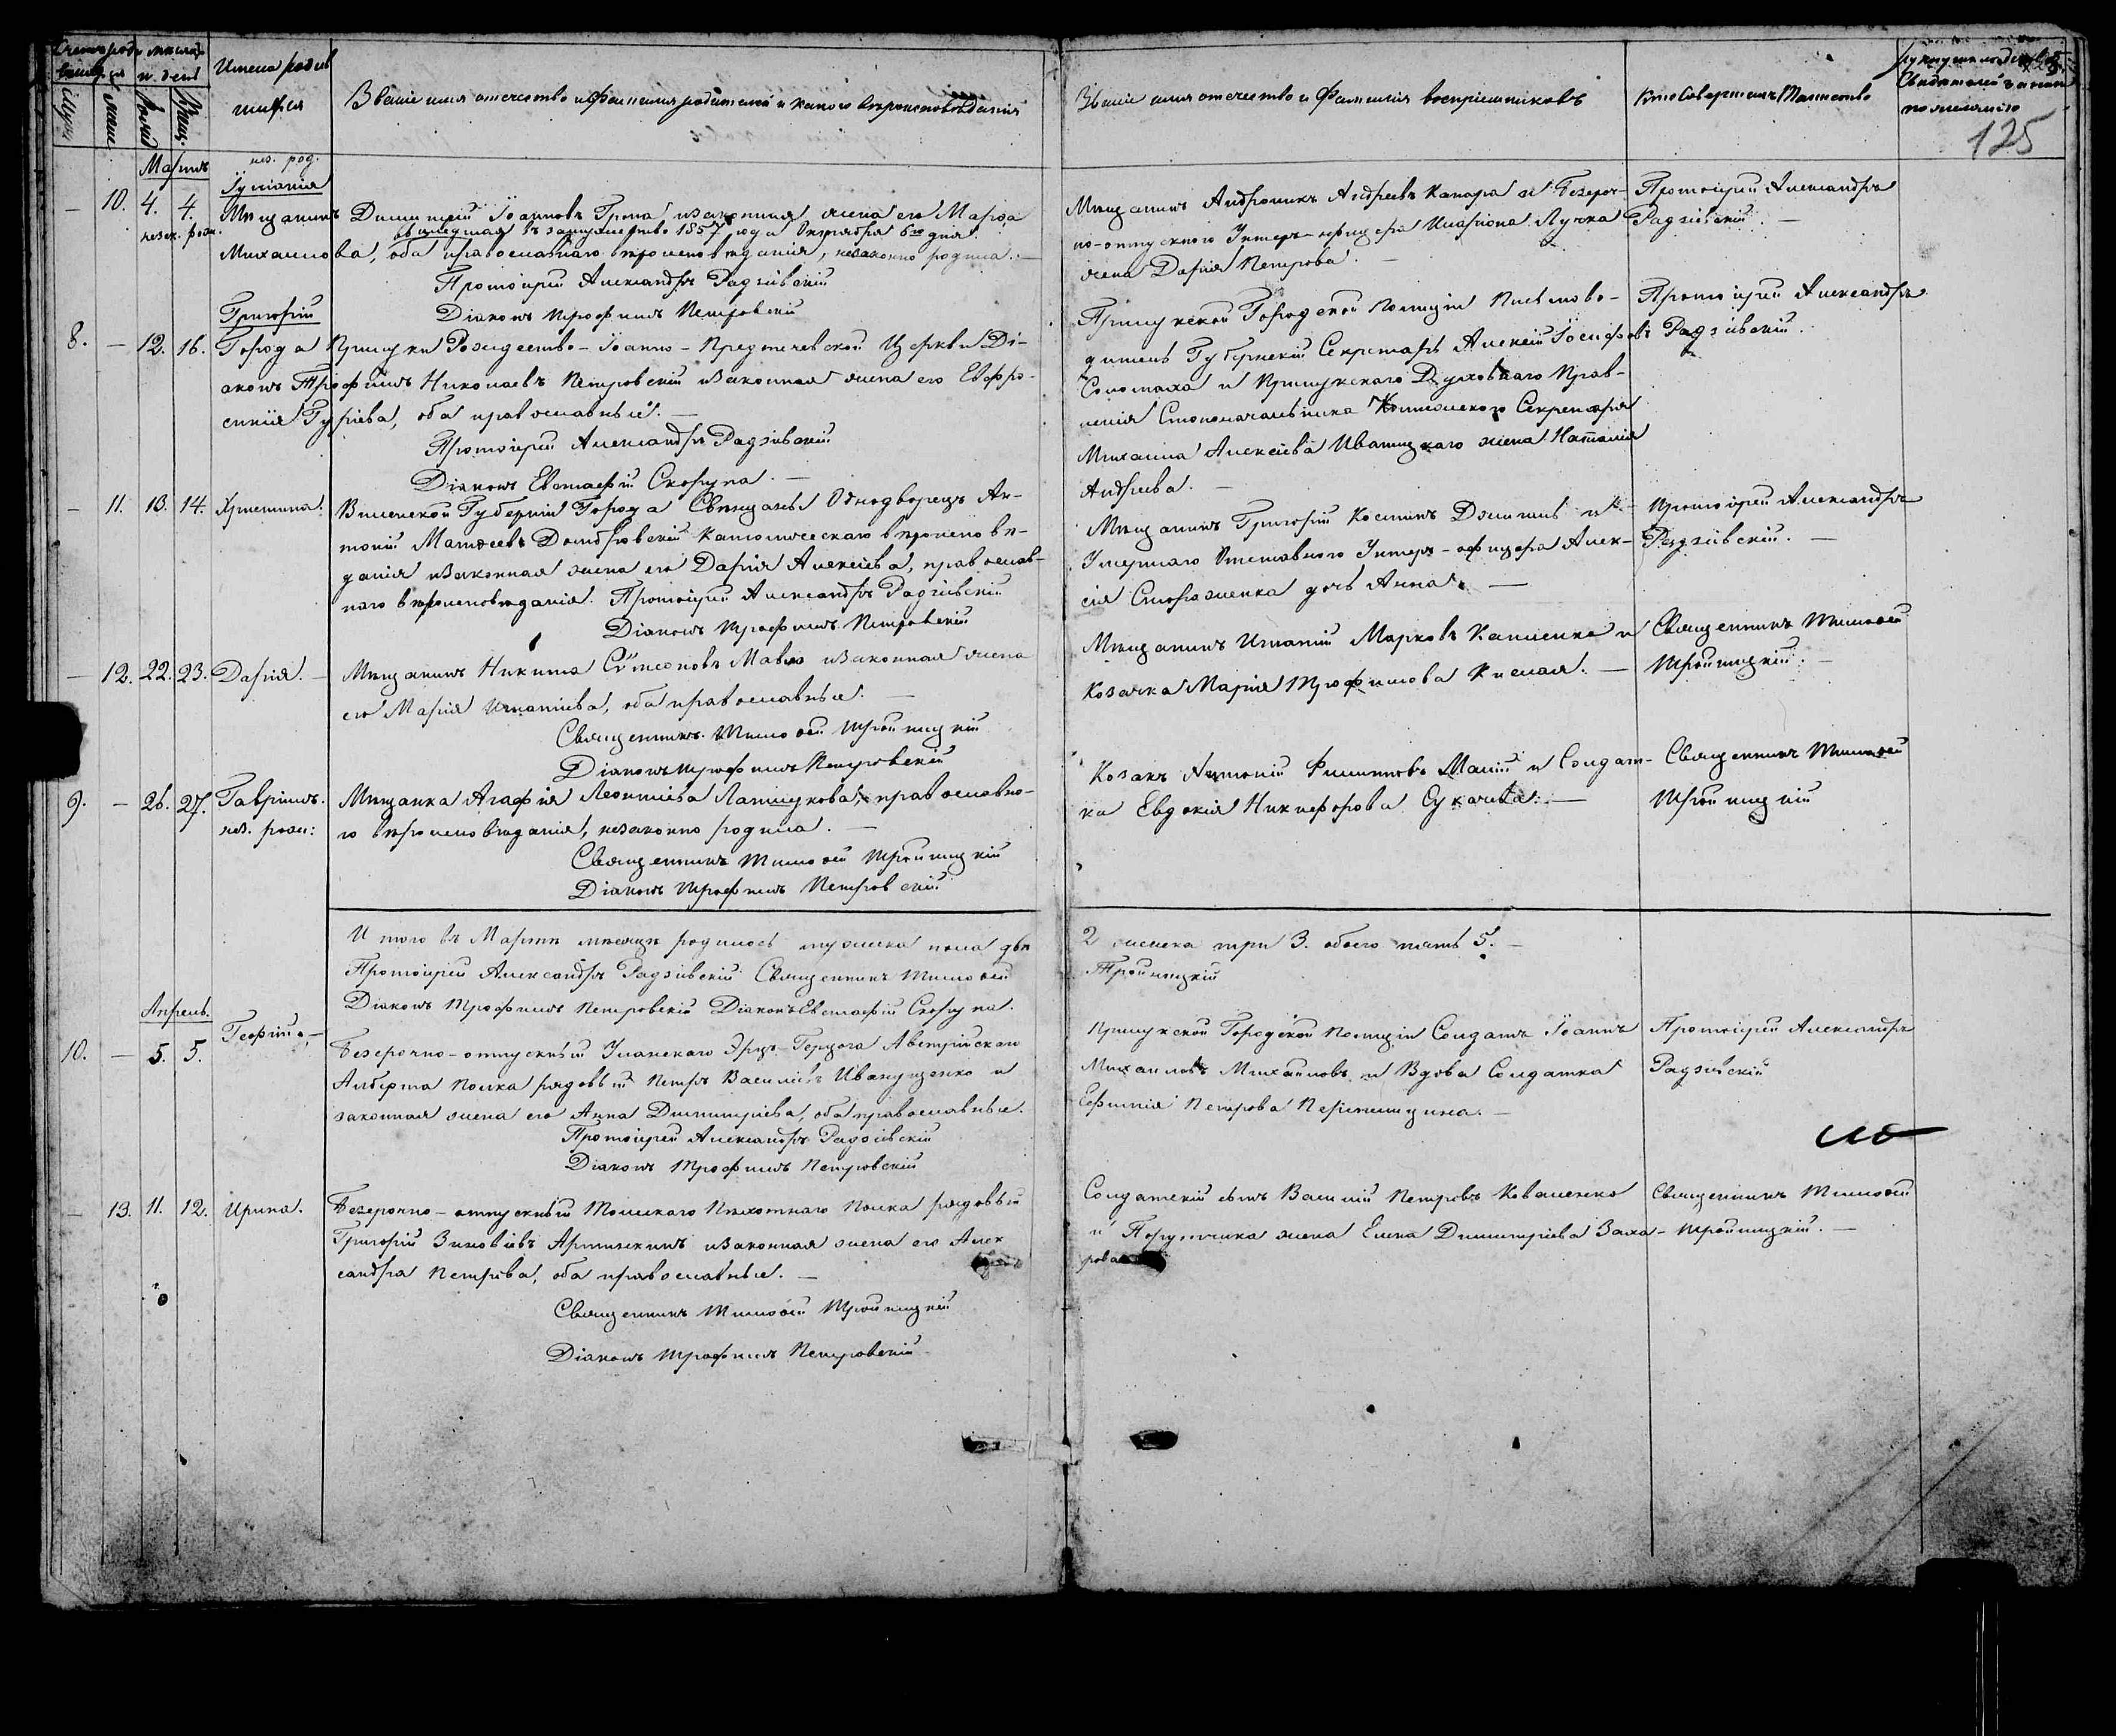 Имена родив
шихся
Званіе имя отечество и Фамилия родителей и какого вѣроисповѣданія
Званіе имя отечество и Фамилія воспріемниковъ
Кто совершалъ Таинство
125
Мартъ
нез. род.
Іуліанія
10. 4. 4.
Мѣщанинъ Димитрій Іоанновъ и законная жена его Марѳа
въ замужество 1857 года Октября 6го дня
Михайлова, оба православнаго вѣроисповѣданія, незаконно родила. —
Протоіерей Александръ Радзіевскій
Діаконъ Трофимъ Петровскій
Мѣщанинъ Андроникъ Андреевъ Капара и Безсроч-
но-отпускного Унтеръ-офицера Иларіона Лучка
жена Дарія Петрова. —
Протоіерей Александръ
Радзіевскій. —
Григорій
8. — 12. 16.
Города Прилуки Рождество-Іоанно-Предтечевской Церкви Ді-
аконъ Трофимъ Николаевъ Петровскій и законная жена его Евфро-
синія Гуріева, оба православные. —
Протоіерей Александръ Радзіевскій
Діаконъ Евстафій Скорупа. —
Прилукской Городской Полиціи Письмово-
дитель Губернскій Секретарь Алексій Іосифовъ
Соломаха и Прилукского Духовнаго Прав-
ленія Столоначальника Секретаря
Михаила Алексіева Иваницкаго жена Наталія
Андреева. —
Протоіерей Александръ
Радзіевскій.
— 11. 13. 14. Христина.
Виленской Губерніи Города Свѣнцяны Однодворецъ Ан-
тоній Матѳеевъ Домбровскій Католическаго вѣроисповѣ-
данія и законная жена его Дарія Алексіева, православ-
наго вѣроисповѣданія. Протоіерей Александръ Радзіевскій
Діаконъ Трофимъ Петровскій
Мѣщанинъ Григорій Костинъ и
Умершаго Отставного Унтеръ-офицера Алек-
сія Стороженка дочь Анна. —
Протоіерей Александръ
Радзіевскій. —
— 12. 22. 23. Дарія. —
Мѣщанинъ Никита Сѵмеоновъ и законная жена
его Марія Игнатіева, оба православные. —
Священникъ Тимоѳей Тройницкій
Діаконъ Трофимъ Петровскій
Мѣщанинъ Игнатій Марковъ и
Козачка Марія Трофимова Кислая. —
Священникъ Тимоѳей
Тройницкій. —
9. — 26. 27. Гавріилъ.
нез. рожд:
Мѣщанка Агафія Леонтіева православно-
го вѣроисповѣданія, незаконно родила. —
Священникъ Тимоѳей Тройницкій
Діаконъ Трофимъ Петровскій
Козакъ Антоній Филипповъ и Солдат-
ка Евдокія Никифорова Сукачева. —
Священникъ Тимоѳей
Тройницкій
Итого въ Мартѣ мѣсяцѣ родилось мужеска пола два 2 женска три 3. обоего пять 5. —
Протоіерей Александръ Радзіевскій Священникъ Тимоѳей Тройницкій
Діаконъ Трофимъ Петровскій Діаконъ Евстафій Скорупа.
Апрель.
10. — 5. 5. Георгій. —
Безсрочно-отпускный Уланскаго Эрцъ-Герцога Австрійскаго
Алберта Полка рядовый Петръ Василіевъ Иванущенко и
законная жена его Анна Димитріева, оба православные.
Протоіерей Александръ Радзіевскій
Діаконъ Трофимъ Петровскій
Прилукской Городской Полиціи Солдатъ Іоаннъ
Михайловъ Михайловъ и Вдова Солдатка
Ефимія Петрова
Протоіерей Александръ
Радзіевскій
— 13. 11. 12. Ирина.
Безсрочно-отпускный Томскаго Пѣхотнаго Полка рядовый
Григорій Зиновіевъ и законная жена его Алек
сандра Петрова, оба православные. —
Священникъ Тимоѳей Тройницкій
Діаконъ Трофимъ Петровскій
Солдатскій сынъ Василій Петровъ Коваленко
и Поручника жена Елена Димитріева Заха-
рова
Священникъ Тимоѳей
Тройницкій. —